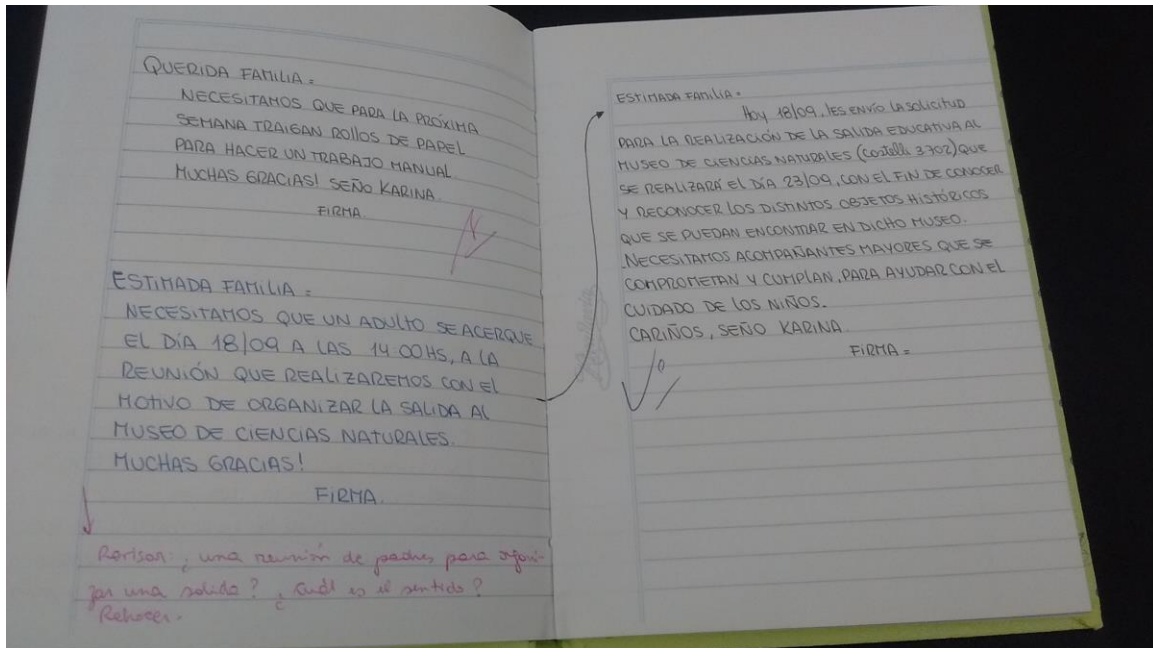 QUERIDA FAMILIA =
NECESITAMOS QUE PARA LA PRÓXIMA
SEMANA TRAIGAN ROLLOS DE PAPEL
PARA HACER UN TRABAJO MANUAL
MUCHAS GRACIAS! SEÑO KARINA.
FIRMA.
ESTIMADA FAMILIA =
NECESITAMOS QUE UN ADULTO SE ACERQUE
EL DÍA 18/09 A LAS 14:00HS, A LA
REUNIÓN QUE REALIZAREMOS CON EL
MOTIVO DE ORGANIZAR LA SALIDA AL
MUSEO DE CIENCIAS NATURALES.
MUCHAS GRACIAS!
FIRMA.
Revisar: ¿ una reunión de padres para organi-
zar una salida? ¿ Cuál es el sentido?
Rehacer.
ESTIMADA FAMILIA =
Hoy 18/09, les ENVÍO LA SOLICITUD
PARA LA REALIZACIÓN DE LA SALIDA EDUCATIVA AL
MUSEO DE CIENCIAS NATURALES (Castelli 3702) QUE
SE REALIZARÁ EL DÍA 23/09, CON EL FIN DE CONOCER
Y RECONOCER LOS DISTINTOS OBJETOS HISTÓRICOS
QUE SE PUEDAN ENCONTRAR EN DICHO MUSEO.
NECESITAMOS ACOMPAÑANTES MAYORES QUE SE
COMPROMETAN Y CUMPLAN, PARA AYUDAR CON EL
CUIDADO DE LOS NIÑOS.
CARIÑOS, SEÑO KARINA.
FIRMA =